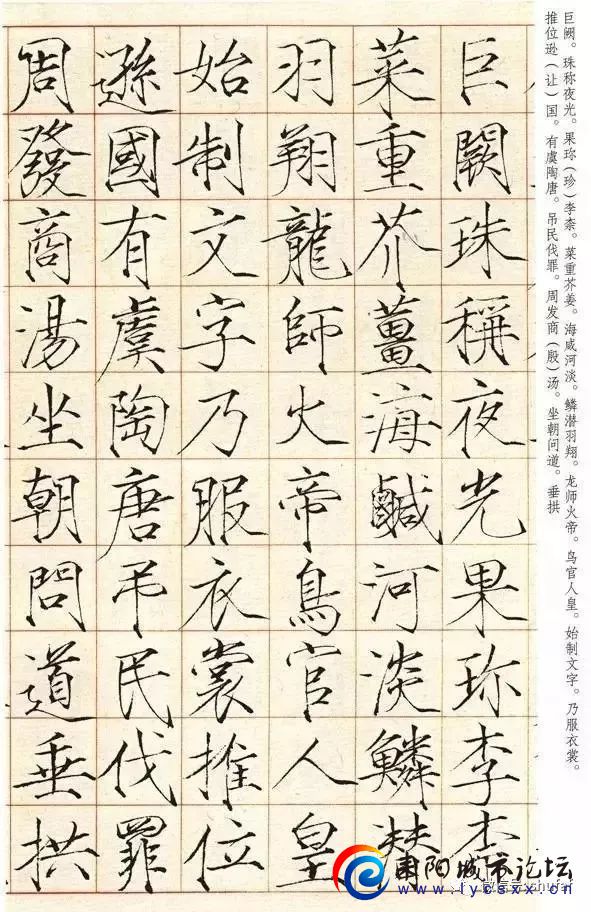 巨阙。珠称夜光。果珎（珍）李柰。菜重芥姜。海咸河淡。鳞潜羽翔。龙师火帝。鸟官人皇。始制文字。乃服衣裳。
推位逊（让）国。有虞陶唐。吊民伐罪。周发商（殷）汤。坐朝问道。垂拱
巨闕珠稱夜光果珎李柰
菜重芥薑海鹹河淡鱗
羽翔龍師火帝鳥官人皇
始制文字乃服衣裳推位
遜國有虞陶唐弔民伐罪
周發商湯坐朝問道垂拱
耒阳城市论坛
www.lycsxx.cn